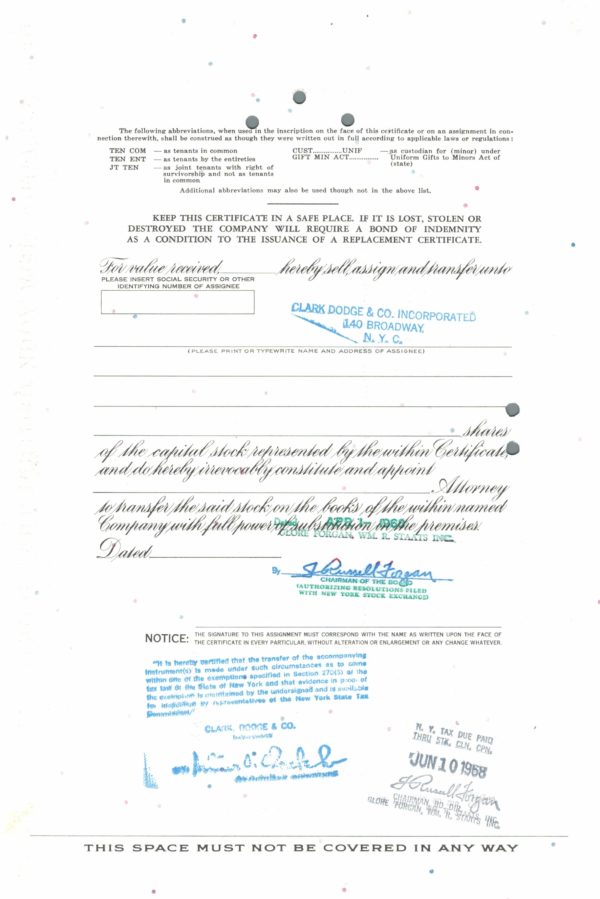 The following abbreviations, when used in the inscription on the face of this certificate or on an assignment in con-
nection therewith, shall be construed as though they were written out in full according to applicable laws or regulations:
TEN COM — as tenants in common
TEN ENT — as tenants by the entireties
JT TEN — as joint tenants with right of
survivorship and not as tenants
in common
CUST..............UNIF — as custodian for (minor) under
GIFT MIN ACT............ Uniform Gifts to Minors Act of
(state)
Additional abbreviations may also be used though not in the above list.
KEEP THIS CERTIFICATE IN A SAFE PLACE. IF IT IS LOST, STOLEN OR
DESTROYED THE COMPANY WILL REQUIRE A BOND OF INDEMNITY
AS A CONDITION TO THE ISSUANCE OF A REPLACEMENT CERTIFICATE.
For value received, hereby sell, assign and transfer unto
PLEASE INSERT SOCIAL SECURITY OR OTHER
IDENTIFYING NUMBER OF ASSIGNEE
CLARK DODGE & CO. INCORPORATED
140 BROADWAY
N. Y. C.
(PLEASE PRINT OR TYPEWRITE NAME AND ADDRESS OF ASSIGNEE)
shares
of the capital stock represented by the within Certificate,
and do hereby irrevocably constitute and appoint
Attorney
to transfer the said stock on the books of the within named
Company with full power of substitution in the premises.
APR 1 - 1968
GLORE FORGAN, WM. R. STAATS INC.
Dated
By J Russell Forgan
CHAIRMAN OF THE BOARD
(AUTHORIZING RESOLUTIONS FILED
WITH NEW YORK STOCK EXCHANGE)
NOTICE: THE SIGNATURE TO THIS ASSIGNMENT MUST CORRESPOND WITH THE NAME AS WRITTEN UPON THE FACE OF
THE CERTIFICATE IN EVERY PARTICULAR, WITHOUT ALTERATION OR ENLARGEMENT OR ANY CHANGE WHATEVER.
"It is hereby certified that the transfer of the accompanying
instrument(s) is made under such circumstances as to come
within one of the exemptions specified in Section 270(5) of the
tax law of the State of New York and that evidence in proof of
the exemption is maintained by the undersigned and is available
for inspection by representatives of the New York State Tax
Commission."
CLARK, DODGE & CO.
N. Y. TAX DUE PAID
THRU STK. CLN. CPN.
JUN 10 1968
J Russell Forgan
CHAIRMAN, BD. DIR.
GLORE FORGAN, WM. R. STAATS INC.
THIS SPACE MUST NOT BE COVERED IN ANY WAY